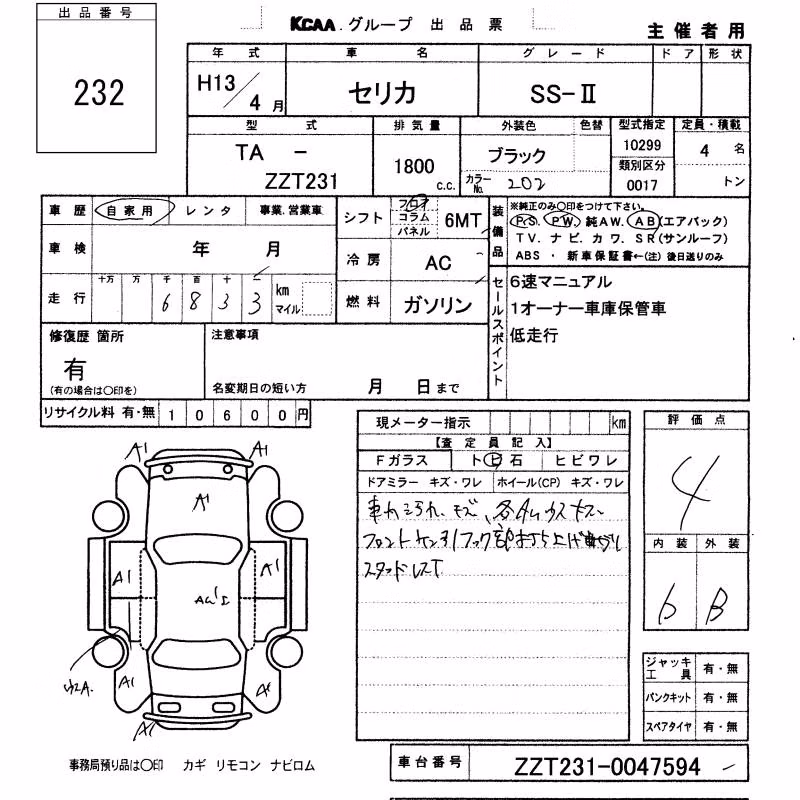 出品番号
232
KCAA.グループ 出品票
主催者用
年式 車名 グレード ドア 形状
H13/4月 セリカ SS-Ⅱ
型式 排気量 外装色 色替 型式指定 定員・積載
TA - ZZT231 1800c.c. ブラック 10299 4名
カラーNo. 202 類別区分 0017 トン
車歴 自家用 レンタ 事業.営業車
車検 年 月
走行 十万 万 千 百 十 一
6 8 3 3 km マイル
シフト フロア コラム パネル 6MT
冷房 AC
燃料 ガソリン
装備品
※純正のみ○印をつけて下さい。
P.S. P.W. 純A.W. A B(エアバック)
T V. ナ ビ. カ ワ. S R(サンルーフ)
A B S ・ 新車保証書←(注) 後日送りのみ
セールスポイント
6速マニュアル
1オーナー車庫保管車
低走行
修復歴 箇所
有
(有の場合は○印を)
注意事項
名変期日の短い方 月 日まで
リサイクル料 有・無 1 0 6 0 0 円
現メーター指示 km
【査 定 員 記 入】
Fガラス トビ石 ヒビワレ
ドアミラー キズ・ワレ ホイール(CP) キズ・ワレ
評価点
4
内装 外装
6 B
A1 A1
A1
A1 A1
A1 A1
A1
ジャッキ工具 有・無
パンクキット 有・無
スペアタイヤ 有・無
事務局預り品は○印 カギ リモコン ナビロム
車台番号 ZZT231-0047594